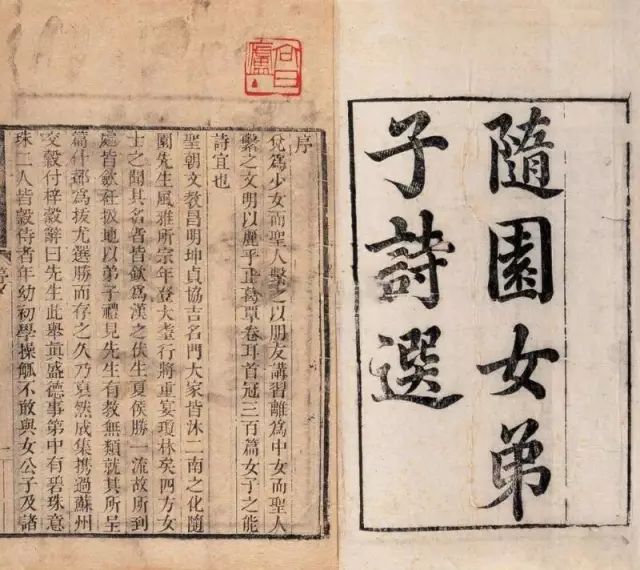 隨園女弟
子詩選
序
兊為少女而聖人繫之以朋友講習離為中女而聖人
繫之文明以麗乎正葛覃卷耳首冠三百篇女子之能
詩宜也
聖朝文教昌明坤貞協吉名門大家皆沐二南之化隨
園先生風雅所宗年登大耋行將重宴瓊林矣四方女
士之聞其名者皆欽為漢之伏生夏侯勝一流故所到
處皆斂衽扱地以弟子禮見先生有教無類就其所呈
篇什都為拔尤選勝而存之久乃裒然成集攜過蘇州
交穀付梓穀辭曰先生此舉眞盛德事第中有碧珠意
珠二人皆穀侍者年幼初學操觚不敢與女公子及諸